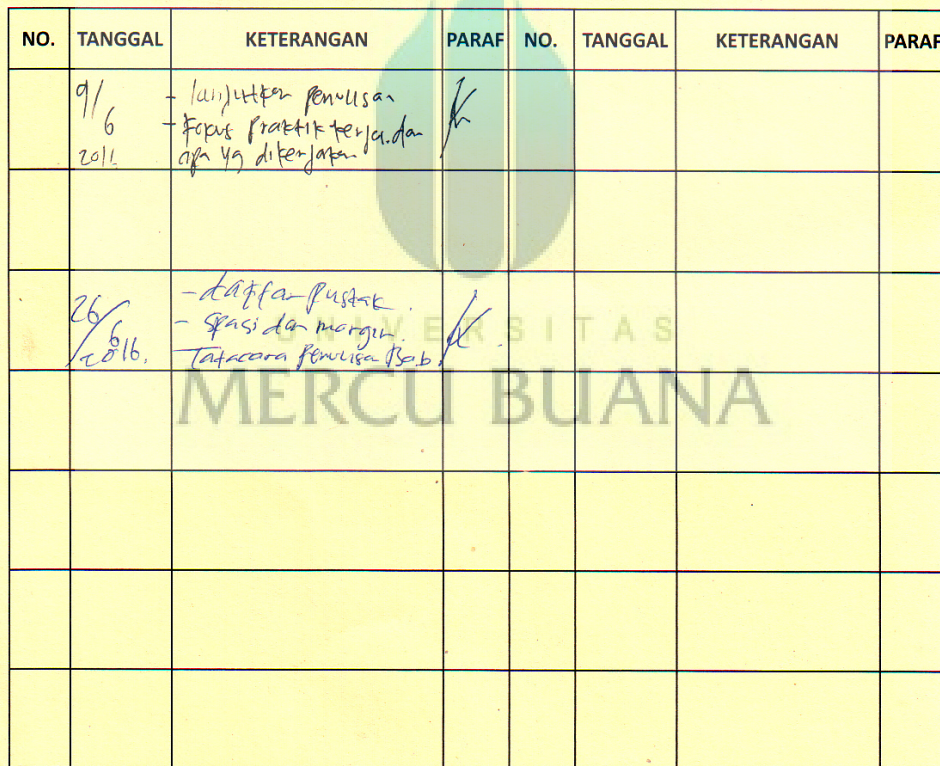 NO. TANGGAL KETERANGAN PARAF NO. TANGGAL KETERANGAN PARAF
9/6 - lanjutkan penulisan
- Fokus praktik kerja dan
201 apa yg dikerjakan
- daftar pustak
26/6 - spasi dan margin.
2016. - Tatacara Penulisan Bab.
UNIVERSITAS
MERCU BUANA